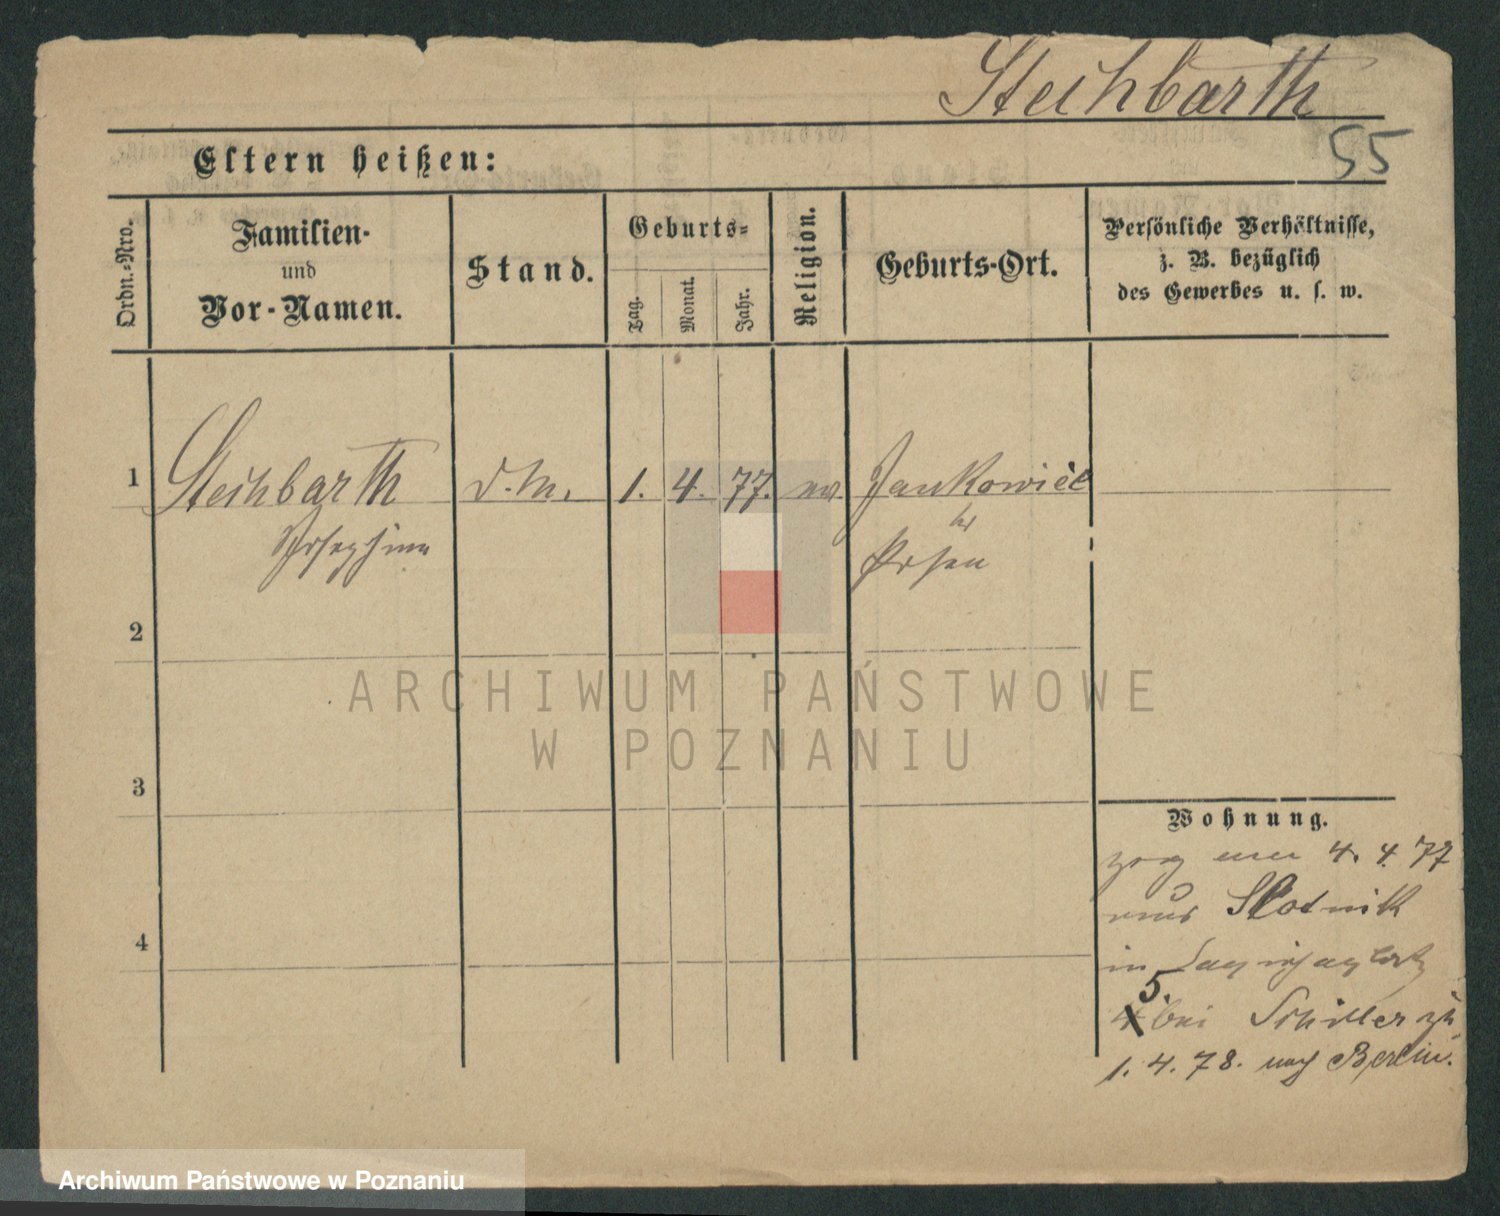 Steihbarth
55
Eltern heißen:
Ordn.-Nro.
Familien-
und
Vor-Namen.
Stand.
Geburts-
Tag.
Monat.
Jahr.
Religion.
Geburts-Ort.
Persönliche Verhältnisse,
z. B. bezüglich
des Gewerbes u. s. w.
1
Steihbarth
d. M.
1.
4.
77.
ev.
Jankowiec
Josephine
Posen
2
ARCHIWUM PAŃSTWOWE
W POZNANIU
3
Wohnung.
zog 4. 4. 77
aus Slotnik
in
4
5.
bei Schiller
1. 4. 78. nach Berlin.
Archiwum Państwowe w Poznaniu